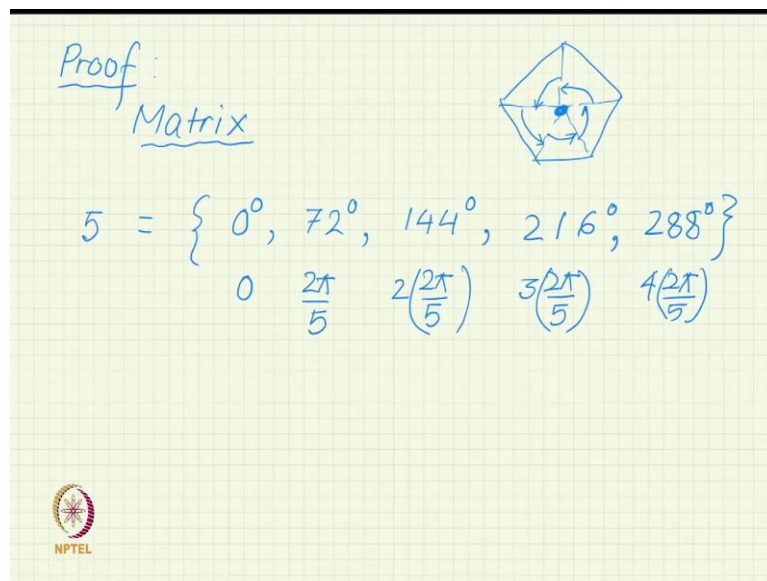 Proof:
Matrix
5 = { 0°, 72°, 144°, 216°, 288° }
0 2π/5 2(2π/5) 3(2π/5) 4(2π/5)
NPTEL